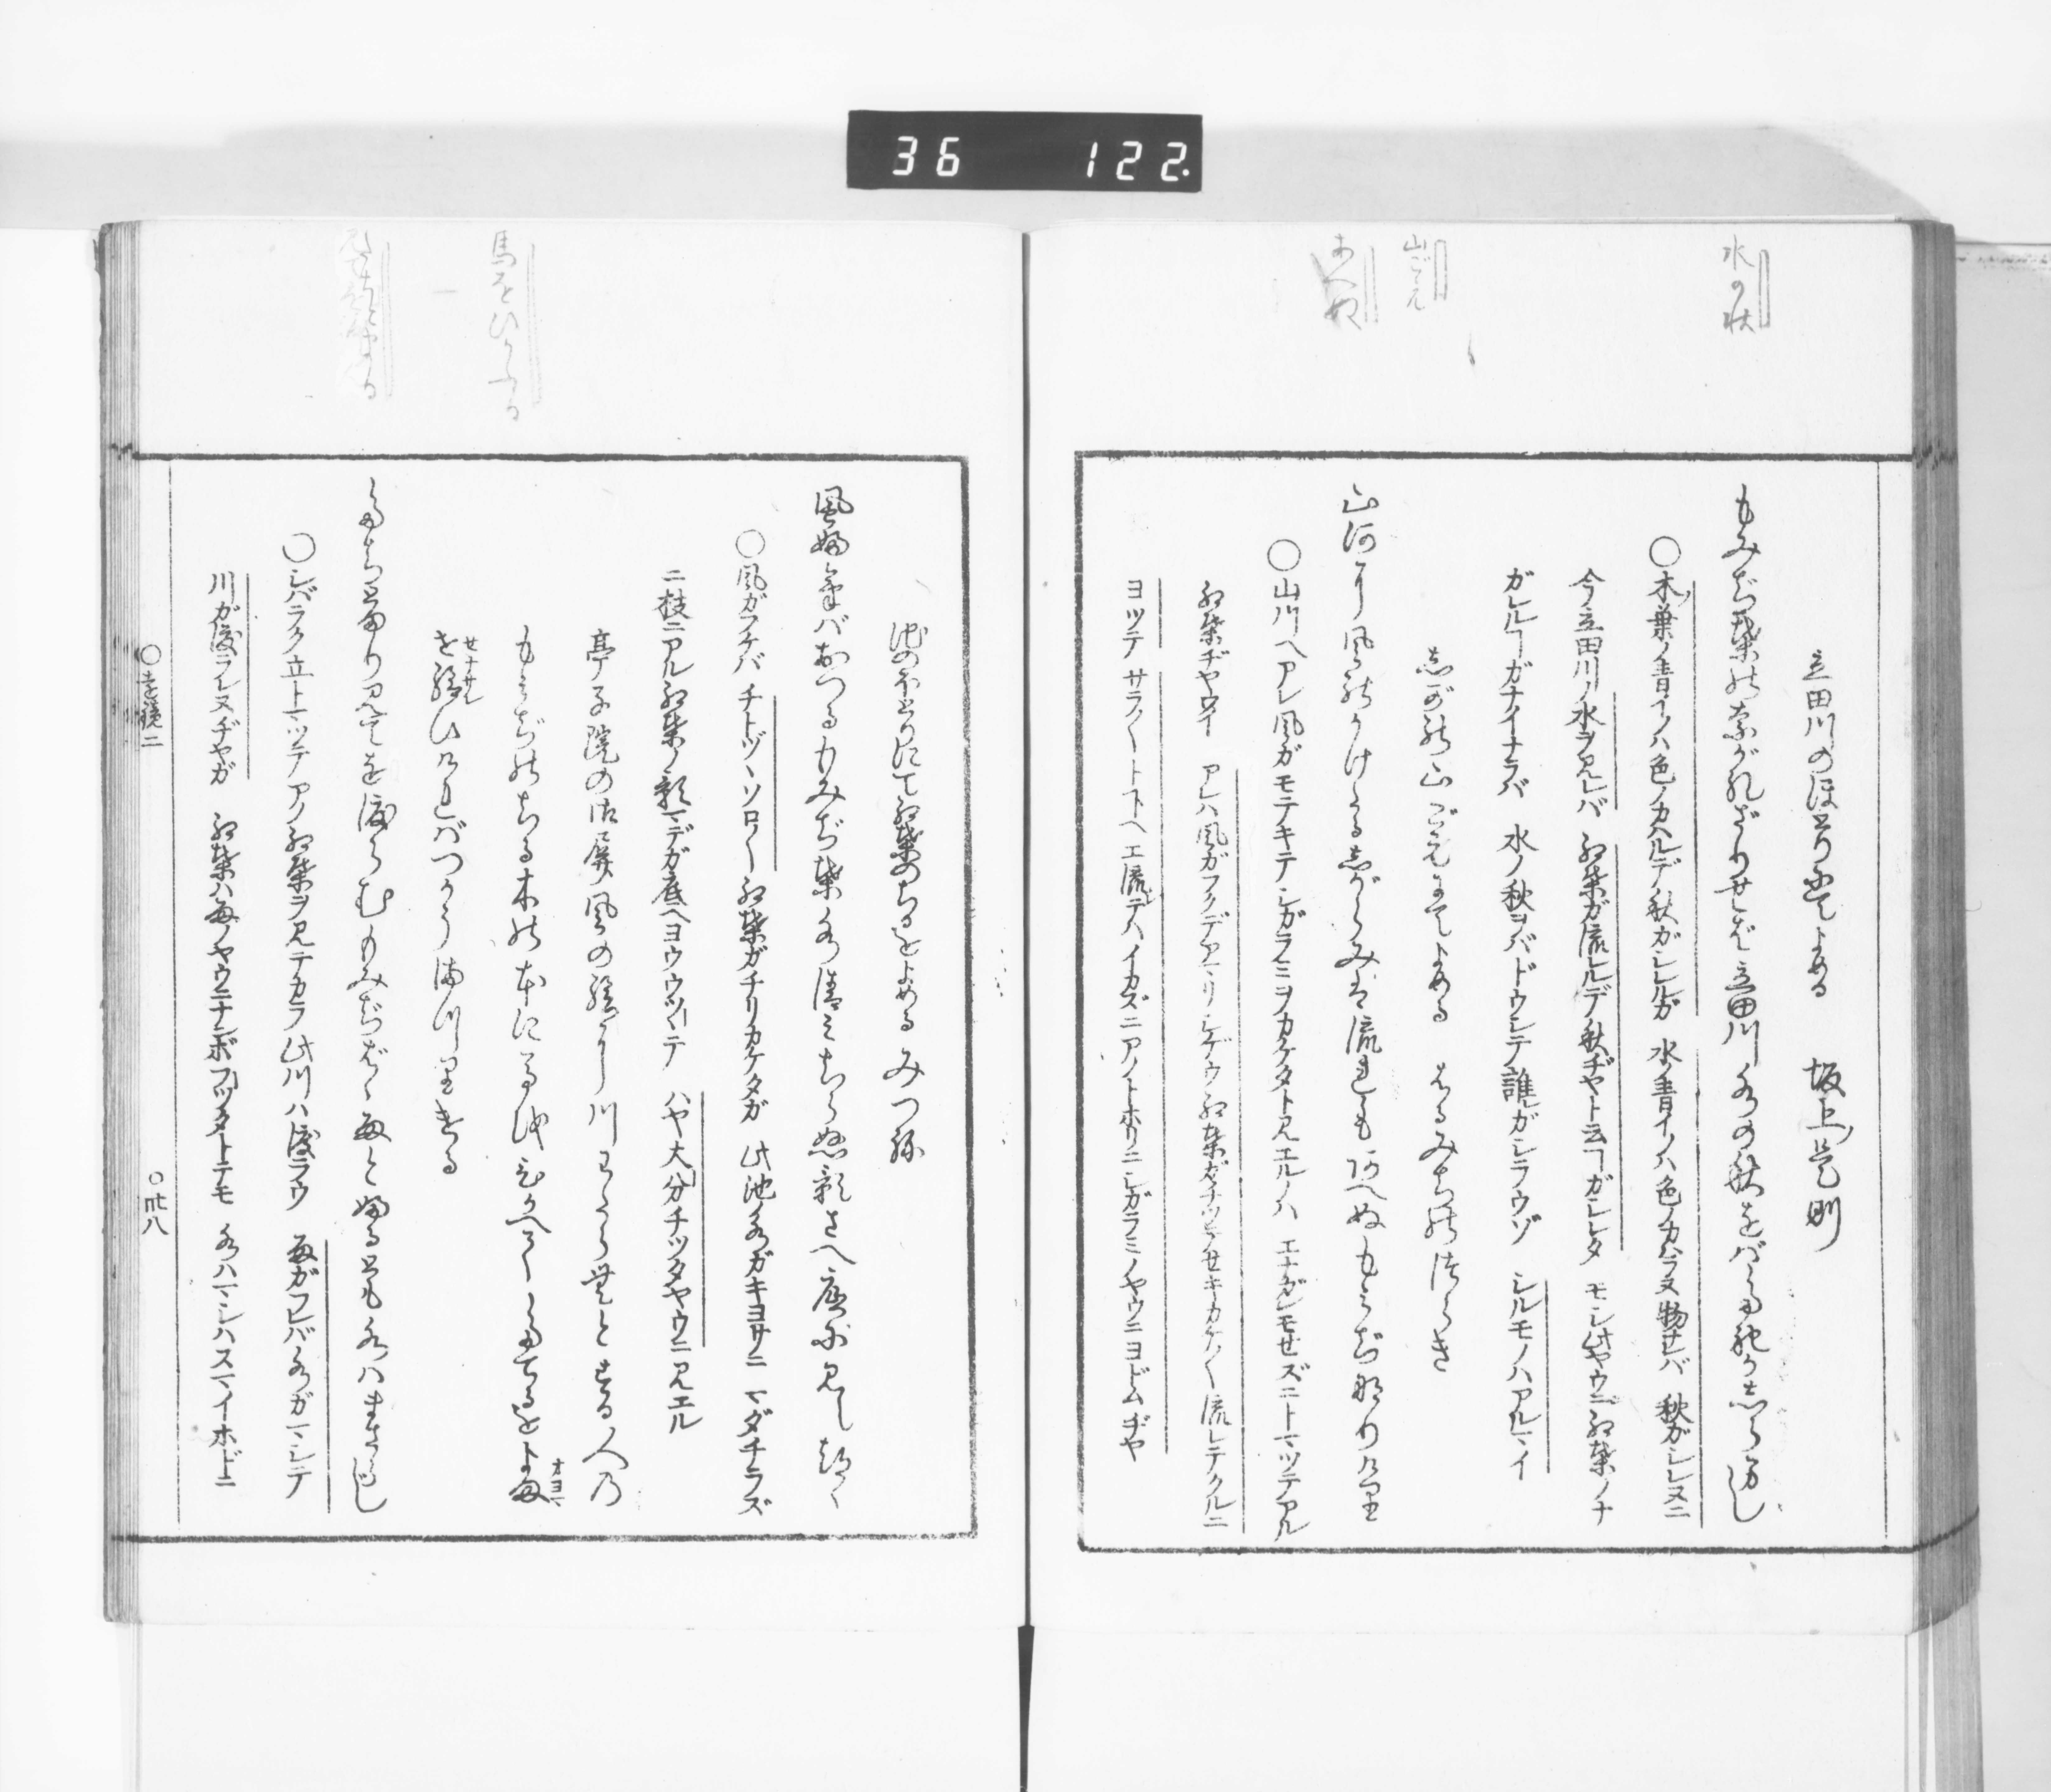 36 122.
水の秋
山ごえ
あへぬ
立田川のほとりにてよめる 坂上是則
もみぢ葉の奈がれざりせば立田川水の秋をばたれかしらまし
○木ノ葉ノ青イノハ色ノカハルデ秋ガシレルガ 水ノ青イノハ色ノカハラヌ物ナレバ 秋ガシレヌニ
今立田川ノ水ヲ見レバ 紅葉ガ流レルデ秋ヂヤト云ヿガシレタ モシ此ヤウニ紅葉ノナ
ガレルヿガナイナラバ 水ノ秋ヲバドウシテ誰ガシラウゾ シルモノハアルマイ
志がの山ごえにてよめる はるみちのつらき
山河に風のかけたるしがらみは流れもあへぬもみぢ那りけり
○山川ヘアレ風ガモテキテシガラミヲカケタト見エルノハ エナガレモセズニトマツテアル
紅葉ヂヤワイ アレハ風ガフクデアマリシゲウ紅葉ガチツテセキカケ〳〵流レテクルニ
ヨツテ サラ〳〵ト下ヘエ流レテハイカズニアノトホリニシガラミノヤウニヨドムヂヤ
池のほとりにて紅葉のちるをよめる みつ祢
風ふけばおつるもみぢ葉水清みちらぬ影さへ底に見えつゝ
○風ガフケバ チトヅヽソロ〳〵紅葉ガチリカケタガ 此池水ガキヨサニ マダチラズ
ニ枝ニアル紅葉ノ影マデガ底ヘヨウウツヽテ ハヤ大分チツタヤウニ見エル
亭子院の御屏風の繪に川わたらむとする人の
もみぢのちる木の本に馬をひかへてたてるをよませ
オヨマ
せナサレ
を給ひければつかうまつりける
たちとまり見てを渡らむもみぢばゝ雨とふるとも水はまさらじ
○シバラク立トマツテアノ紅葉ヲ見テカラ此川ハ渡ラウ 雨ガフレバ水ガマシテ
川ガ渡ラレヌヂヤガ 紅葉ハ雨ノヤウニナンボフツタトテモ 水ハマシハスマイホドニ
馬をひかへる
○遠鏡二
○卅八